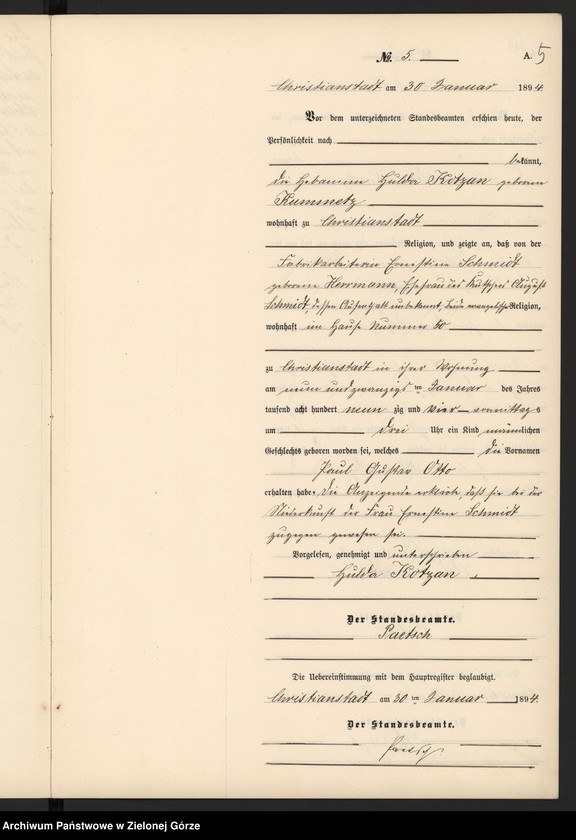 No. 5.
A. 5
Christianstadt am 30 Januar 1894
Vor dem unterzeichneten Standesbeamten erschien heute, der
Persönlichkeit nach
bekannt,
die Hebamme Hulda Kotzan geborene
Kummetz
wohnhaft zu Christianstadt
Religion, und zeigte an, daß von der
Fabrikarbeiterin Ernestine Schmidt
geborene Herrmann, Ehefrau des Kutschers August
Schmidt, dessen Aufenthalt unbekannt, beide evangelischer Religion,
wohnhaft im Hause Nummer 50
zu Christianstadt in ihrer Wohnung
am neun und zwanzigsten Januar des Jahres
tausend acht hundert neun zig und vier vormittags
um drei Uhr ein Kind männlichen
Geschlechts geboren worden sei, welches die Vornamen
Paul Gustav Otto
erhalten habe. Die Anzeigende erklärte, daß sie bei der
Niederkunft der Frau Ernestine Schmidt
zugegen gewesen sei.
Vorgelesen, genehmigt und unterschrieben
Hulda Kotzan.
Der Standesbeamte.
Paetsch
Die Uebereinstimmung mit dem Hauptregister beglaubigt.
Christianstadt am 30ten Januar 1894.
Der Standesbeamte.
Paetsch
Archiwum Państwowe w Zielonej Górze